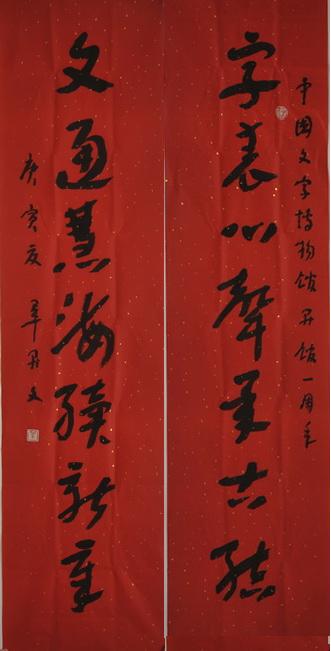 中国文字博物馆开馆一周年
字表心聲承古
文通慧海續新章
庚寅夏